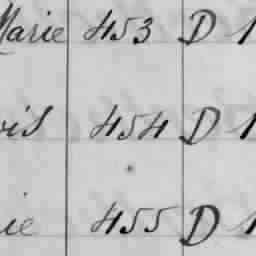 Marie 453 D 1
vis 454 D 1
ie 455 D 1